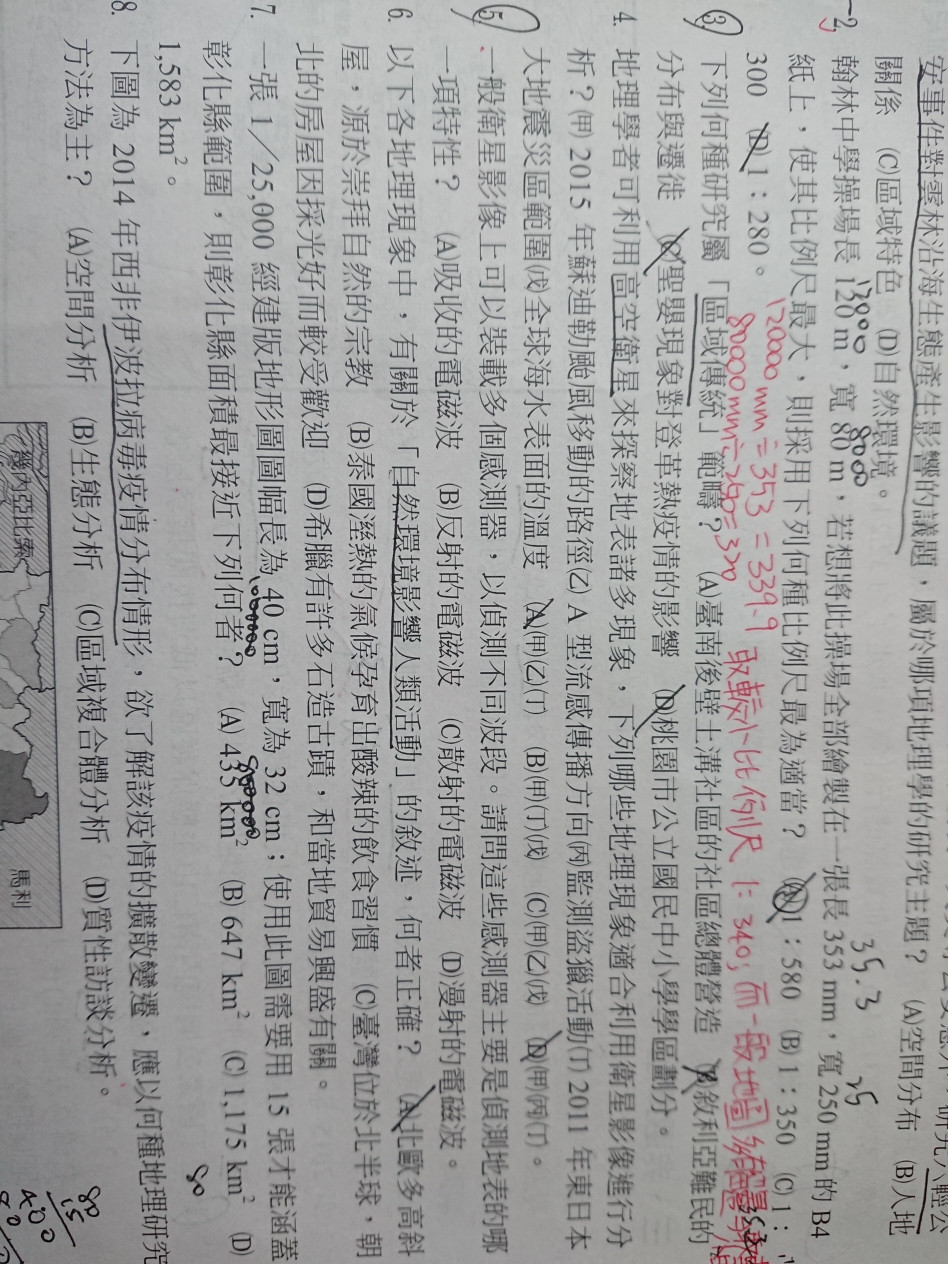 安事件對雲林沿海生態產生影響的議題，屬於哪項地理學的研究主題？ (A)空間分布 (B)人地
關係 (C)區域特色 (D)自然環境。
12000 8000 35.3 25
2. 翰林中學操場長 120 m，寬 80 m，若想將此操場全部繪製在一張長 353 mm，寬 250 mm 的 B4
紙上，使其比例尺最大，則採用下列何種比例尺最為適當？ (A)1：580 (B)1：350 (C)1：
300 (D)1：280。
120000 mm ÷ 353 = 339.9 取較小比例尺 1:340；而一般地圖
80000 mm ÷ 250 = 320
3. 下列何種研究屬「區域傳統」範疇？ (A)臺南後壁土溝社區的社區總體營造 (B)敘利亞難民的
分布與遷徙 (C)聖嬰現象對登革熱疫情的影響 (D)桃園市公立國民中小學學區劃分。
4. 地理學者可利用高空衛星來探察地表諸多現象，下列哪些地理現象適合利用衛星影像進行分
析？(甲) 2015 年蘇迪勒颱風移動的路徑(乙) A 型流感傳播方向(丙)監測盜獵活動(丁) 2011 年東日本
大地震災區範圍(戊)全球海水表面的溫度 (A)(甲)(乙)(丁) (B)(甲)(丁)(戊) (C)(甲)(乙)(戊) (D)(甲)(丙)(丁)。
5. 一般衛星影像上可以裝載多個感測器，以偵測不同波段。請問這些感測器主要是偵測地表的哪
一項特性？ (A)吸收的電磁波 (B)反射的電磁波 (C)散射的電磁波 (D)漫射的電磁波。
6. 以下各地理現象中，有關於「自然環境影響人類活動」的敘述，何者正確？ (A)北歐多高斜
屋，源於崇拜自然的宗教 (B)泰國溼熱的氣候孕育出酸辣的飲食習慣 (C)臺灣位於北半球，朝
北的房屋因採光好而較受歡迎 (D)希臘有許多石造古蹟，和當地貿易興盛有關。
7. 一張 1／25,000 經建版地形圖圖幅長為 40 cm，寬為 32 cm；使用此圖需要用 15 張才能涵蓋
彰化縣範圍，則彰化縣面積最接近下列何者？ (A) 435 km² (B) 647 km² (C) 1,175 km² (D)
1,583 km²。
80
8. 下圖為 2014 年西非伊波拉病毒疫情分布情形，欲了解該疫情的擴散變遷，應以何種地理研究
方法為主？ (A)空間分析 (B)生態分析 (C)區域複合體分析 (D)質性訪談分析。
80
15
400
幾內亞比索
馬利